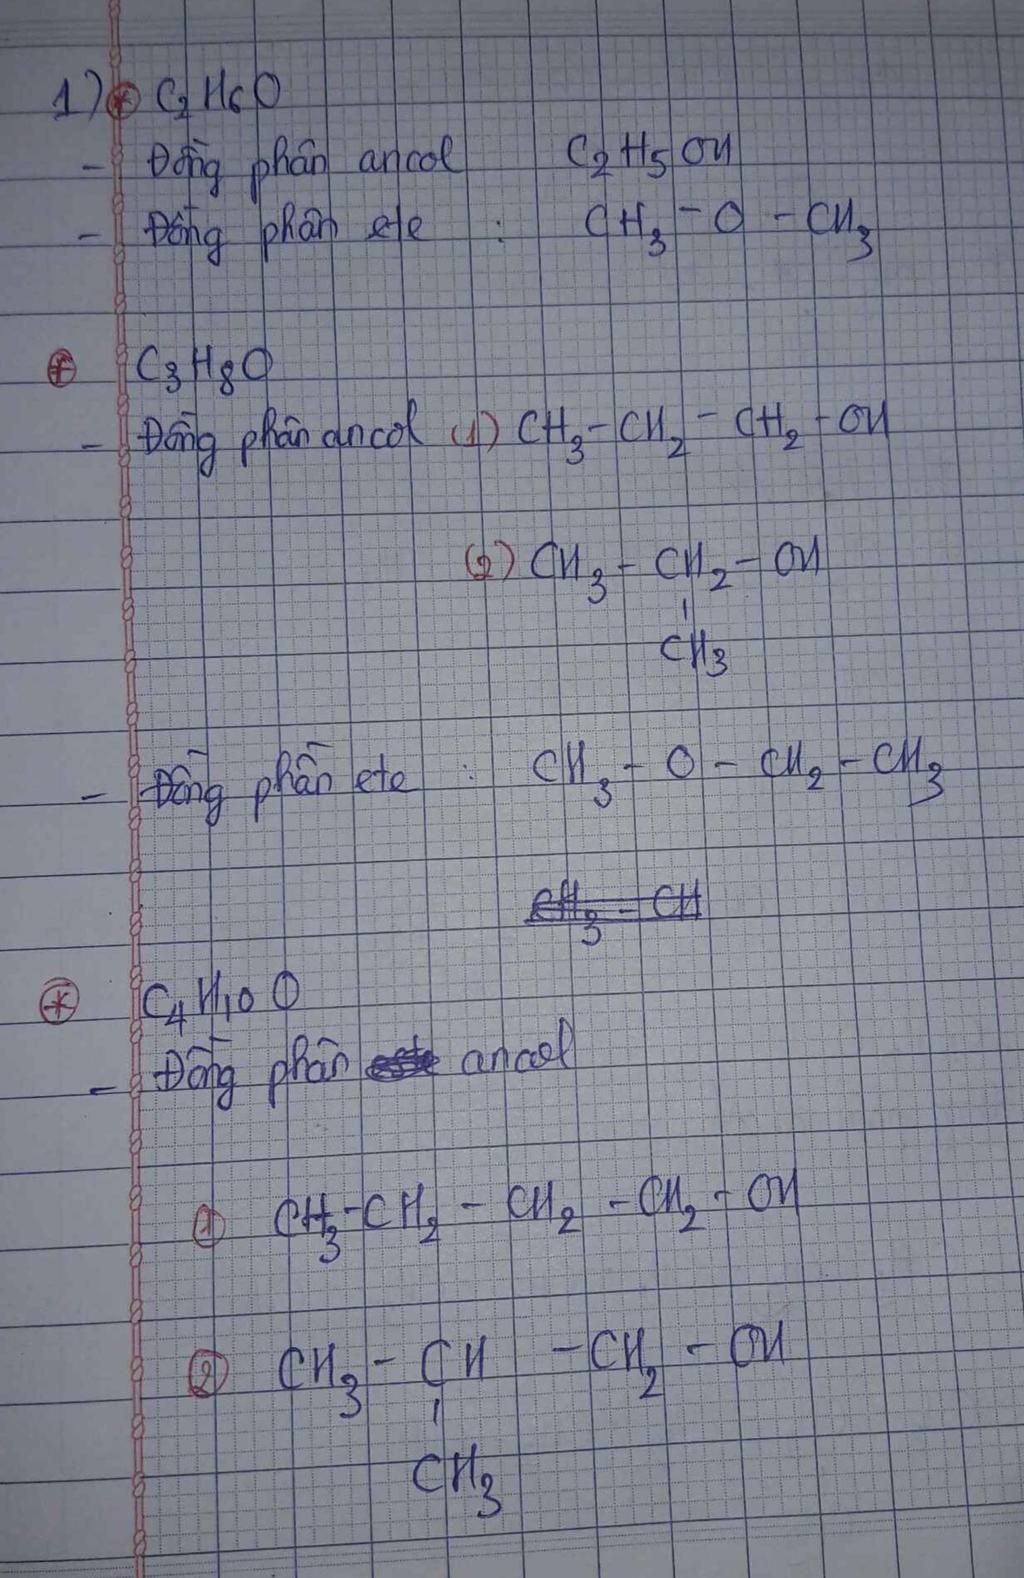 1) * C₂H₆O
- Đồng phân ancol C₂H₅OH
- Đồng phân ete : CH₃ - O - CH₃
* C₃H₈O
- Đồng phân ancol (1) CH₃ - CH₂ - CH₂ - OH
(2) CH₃ - CH₂ - OH
CH₃
- Đồng phân ete : CH₃ - O - CH₂ - CH₃
CH₃ - CH
* C₄H₁₀O
- Đồng phân ancol
① CH₃ - CH₂ - CH₂ - CH₂ - OH
② CH₃ - CH - CH₂ - OH
CH₃